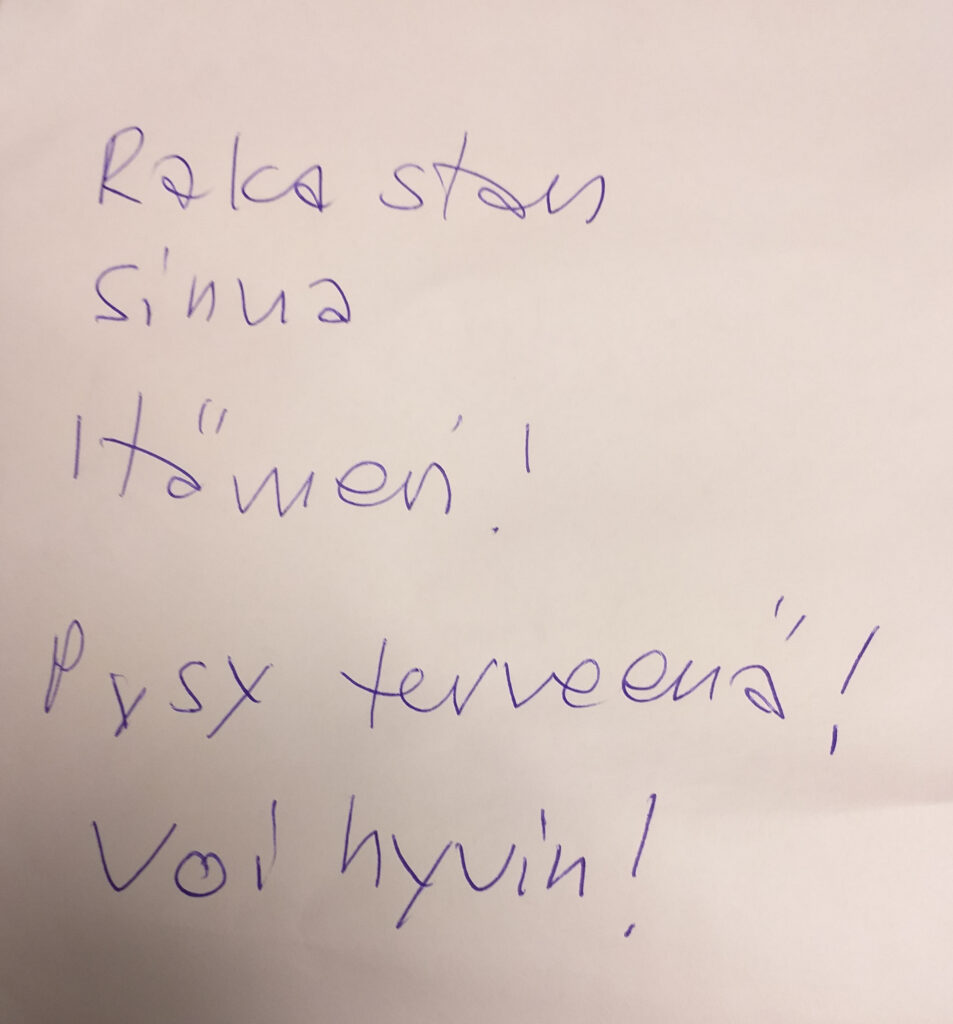 Rakastan
sinua
Itämeri!
Pysy terveenä!
Voi hyvin!